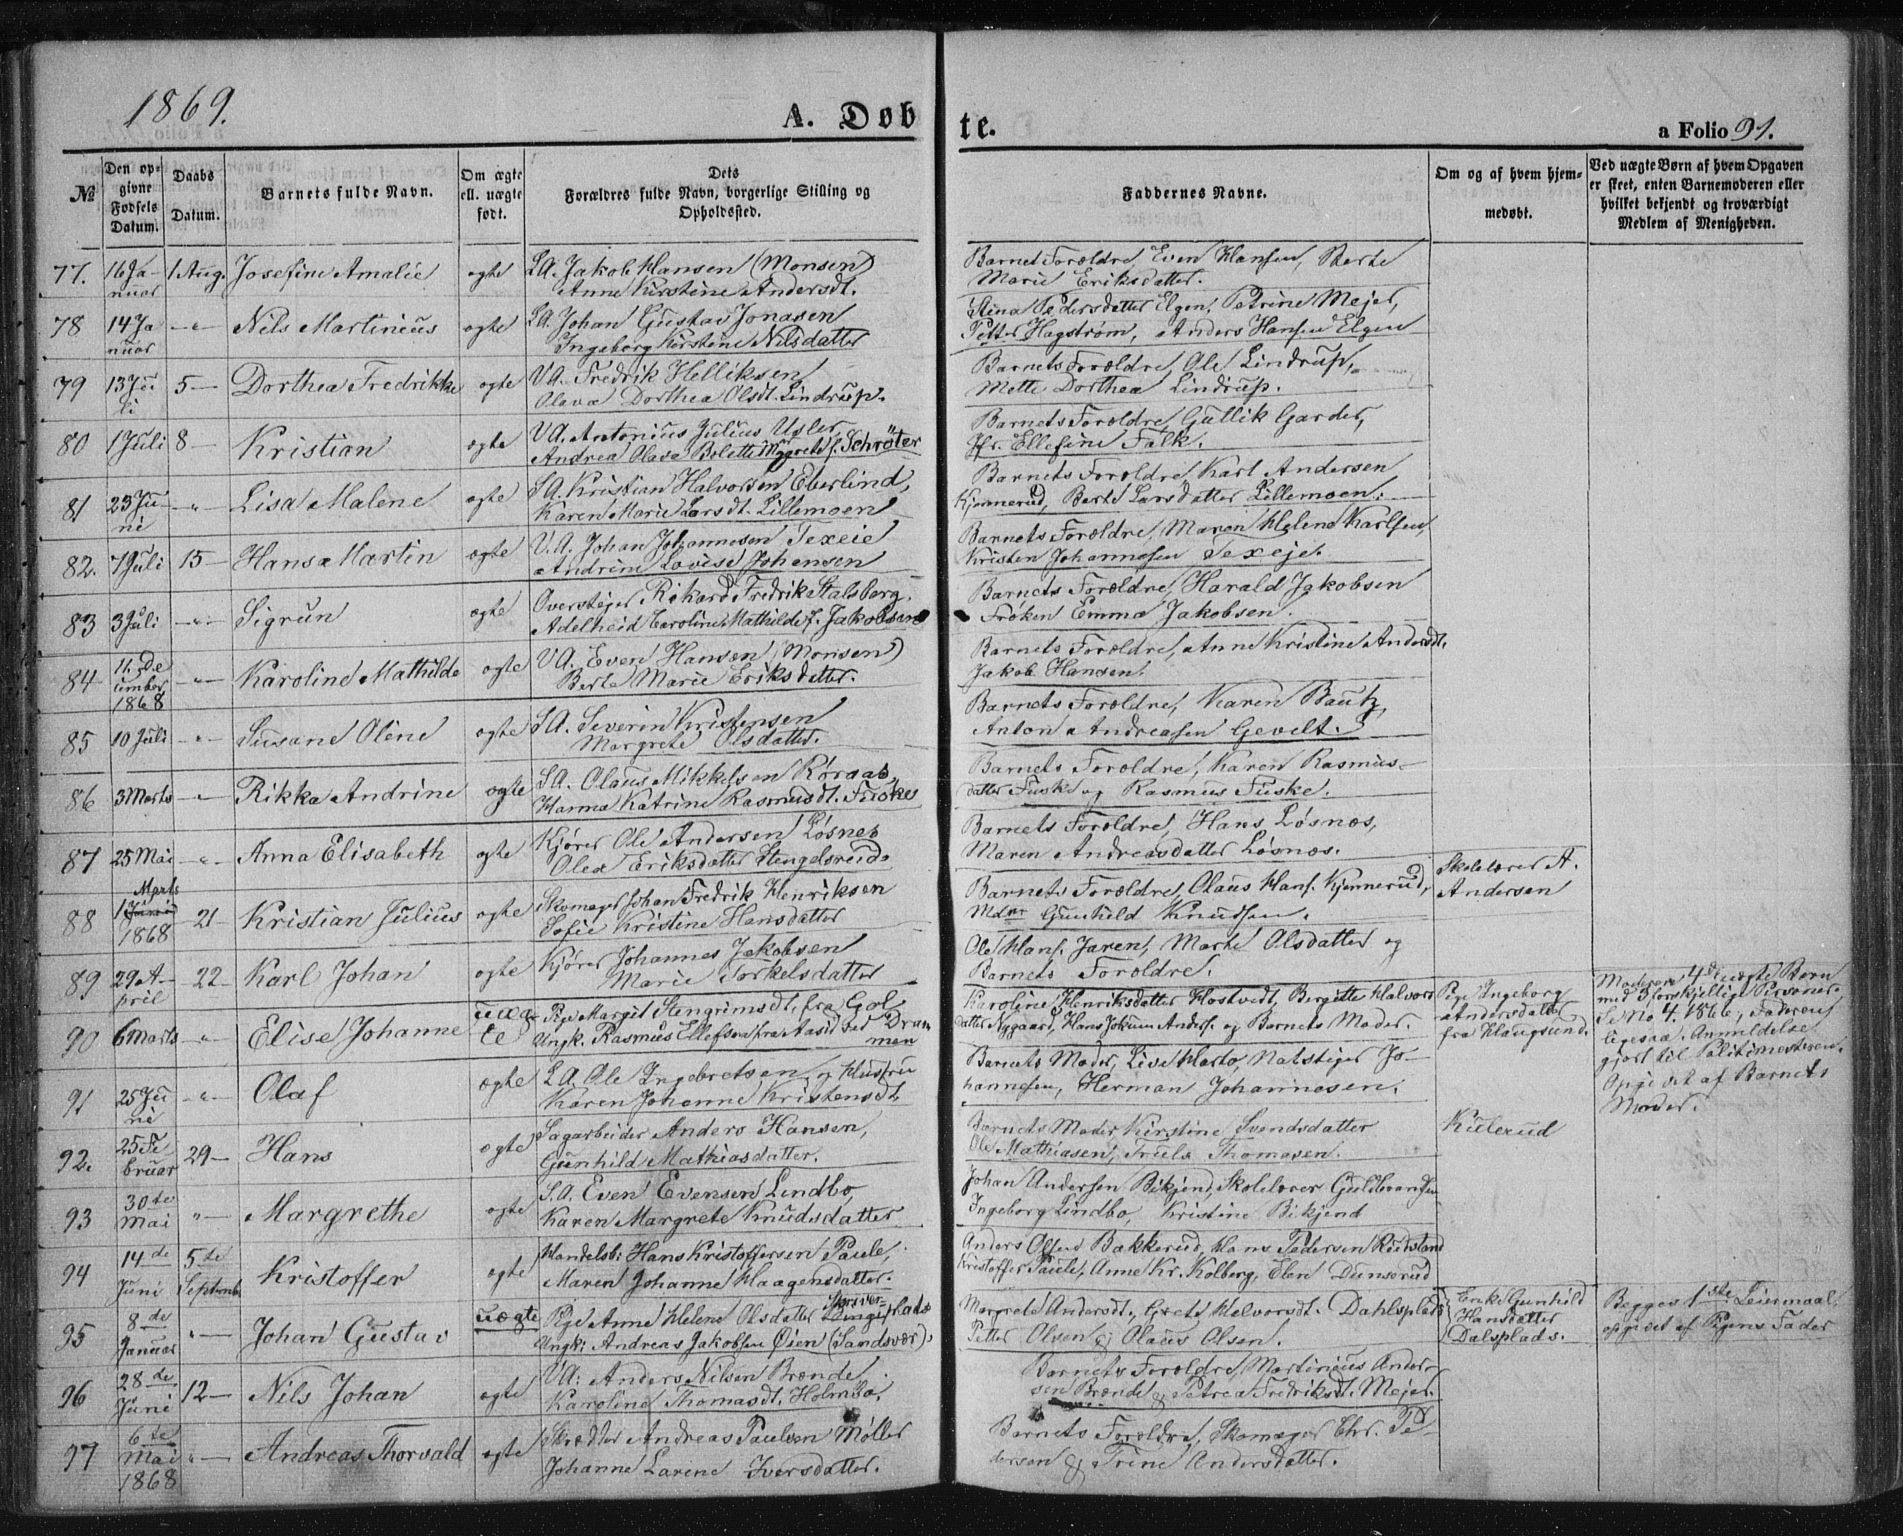 1869.
A. Døbte.
a Folio 91.
№ | Den opgivne Fødsels Datum. | Daabs Datum. | Barnets fulde Navn. | Om ægte ell. uægte født. | Dets Forældres fulde Navn, borgerlige Stilling og Opholdssted. | Faddernes Navne. | Om og af hvem hjemmedøbt. | Ved uægte Børn af hvem Opgaven er skeet, enten Barnemoderen eller hvilket bekjendt og troværdigt Medlem af Menigheden.
77. | 16 Januar | 1 Aug. | Josefine Amalie | ægte | S.A. Jakob Hansen (Monsen) Anne Kirstine Andersdt. | Barnets Forældre, Even Hansen, Berte Marie Eriksdatter.
78 | 14 Januar | " | Nils Martinius | ægte | S.A. Johan Gustav Jonasen Ingeborg Kirstine Nilsdatter | Stina Pedersdatter Elgen, Petrine Mejer, Petter Hagstrøm, Anders Hansen Elgen
79 | 13 Juli | 5 | Dorthea Fredrikke | ægte | V.A. Fredrik Helliksen Olava Dorthea Olsdt. Lindrup. | Barnets Forældre, Ole Lindrup, Mette Dorthea Lindrup.
80 | 1 Juli | 8 | Kristian | ægte | V.A. Antonius Julius Usler, Andrea Olava Bolette Mgrete f. Schrøter | Barnets Forældre, Gullik Garder, Jfr. Ellefine Falk.
81 | 23 Juni | " | Lisa Malene | ægte | S.A. Kristian Halvorsen Eberlind, Karen Marie Larsdt. Lillemoen | Barnets Forældre, Karl Andersen Kjennerud, Berte Larsdatter Lillemoen.
82. | 7 Juli | 15 | Hans Martin | ægte | V.A. Johan Johannesen Texeie Andrine Lovise Johansen | Barnets Forældre, Maren Helene Karlsen, Kristen Johannesen Texeje.
83 | 3 Juli | " | Sigrun | ægte | Overstiger Rikard Fredrik Stalsberg. Adelheid Caroline Mathilde f. Jakobsen | Barnets Forældre, Harald Jakobsen Frøken Emma Jakobsen.
84 | 11 December 1868 | " | Karoline Mathilde | ægte | V.A. Even Hansen (Monsen) Berte Marie Eriksdatter. | Barnets Forældre, Anne Kristine Andersdt. Jakob Hansen.
85 | 10 Juli | " | Susane Oline | ægte | S.A. Severin Kristensen Margrete Olsdatter. | Barnets Forældre, Karen Bautz, Anton Andreasen Gevelt.
86 | 3 Marts | " | Rikka Andrine | ægte | S.A. Olaus Mikkelsen Hanna Katrine Rasmusdt. Fuske | Barnets Forældre, Karen Rasmusdatter Fusk og Rasmus Fuske.
87 | 25 Mai | " | Anna Elisabeth | ægte | Kjører Ole Andersen Løsnes Olea Eriksdatter Stengelsrud. | Barnets Forældre, Hans Løsnæs, Maren Andreasdatter Løsnæs.
88 | 1 Marts 1868 | 21 | Kristian Julius | ægte | Skomager Johan Fredrik Henriksen Sofie Kristine Hansdatter | Barnets Forældre, Olaus Hans. Kjennerud, Mdm Gunhild Knudsen. | Skolelærer A. Andersen
89 | 29 April | 22 | Karl Johan | ægte | Kjører Johannes Jakobsen Marie Torkelsdatter | Ole Hans. Jaren, Marte Olsdatter og Barnets Forældre.
90 | 6 Marts | " | Elise Johanne | uægte | Pige Margit Stengrimsdt. fra Gol Ungk. Rasmus Ellefsen fra Aasid ved Drammen | Karoline Henriksdatter Hostvedt, Bergitte Halvorsdatter Aggaard, Hans Jokum Anders. og Barnets Moder. | Pige Ingeborg Andersdatter fra Haugsund. | Moderens 4de uægte Barn med 3 forskjellige Personer. Se No 4. 1866, Faderen ligesaa. Anmeldelse gjort til Politimesteren. Opgivet af Barnets Moder.
91 | 25 Juni | " | Olaf | ægte | S.A. Ole Ingebretsen og Hustru Karen Johanne Kristensdt. | Barnets Moder, Live Marto, Natstiger Johannesen, Herman Johannesen.
92. | 25 Februar | 29 | Hans | ægte | Sagarbeider Anders Hansen, Gunhild Mathiasdatter. | Barnets Moder, Kirstine Svendsdatter Ole Mathiasen, Truls Thomasen. | Kulerud
93 | 30te Mai | " | Margrethe | ægte | S.A. Even Evensen Lindbo, Karen Margrete Knudsdatter | Johan Andersen Bikjend, Skolelærer Guldbrandsen Ingeborg Lindbo, Kristine Bikjend
94 | 14de Juni | 5te Septemb. | Kristoffer | ægte | Handelsb: Hans Kristoffersen Paule, Maren Johanne Haagensdatter. | Anders Olsen Bakkerud, Hans Pedersen Rudsland Kristoffer Paule, Anne Kr. Kolberg, Elen Dunserud
95 | 8de Januar | " | Johan Gustav | uægte | Pige Anne Helene Olsdatter Ungk: Andreas Jakobsen Øien (Sandsvær). | Margrete Andersdt., Grete Halvorsdt. Dahlsplads Petter Olsen og Olaus Olsen. | Enke Gunhild Hansdatter Dalsplads. | Begges 1ste Leiermaal, opgivet af Pigens Fader
96 | 28de Juni | 12 | Nils Johan | ægte | V.A: Anders Nilsen Brænde, Karoline Thomasdt. Holmbo. | Barnets Forældre, Martinius Andersen Brænde og Petrea Fredriksdt. Mejer.
97 | 6te Mai 1868 | " | Andreas Thorvald | ægte | Skrædder Andreas Paulsen Møller Johanne Larene Iversdatter. | Barnets Forældre, Skomager Chr. Pedersen og Trine Andersdatter.